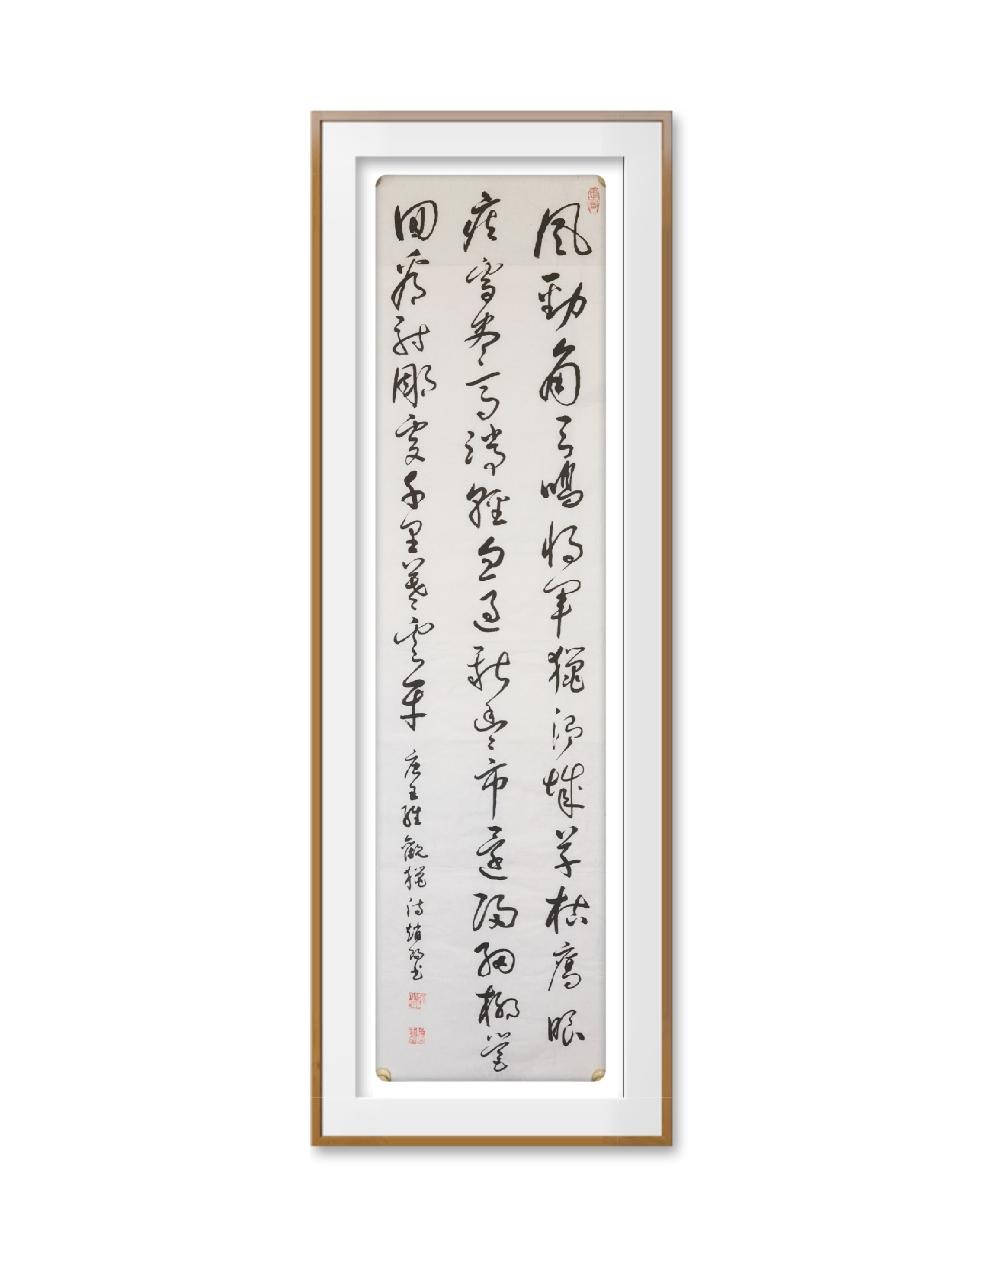 風勁角弓鳴將軍獵渭城草枯鷹眼
疾雪盡馬蹄輕忽過新豐市還歸細柳營
回看射雕處千里暮雲平
唐王維觀獵詩趙書